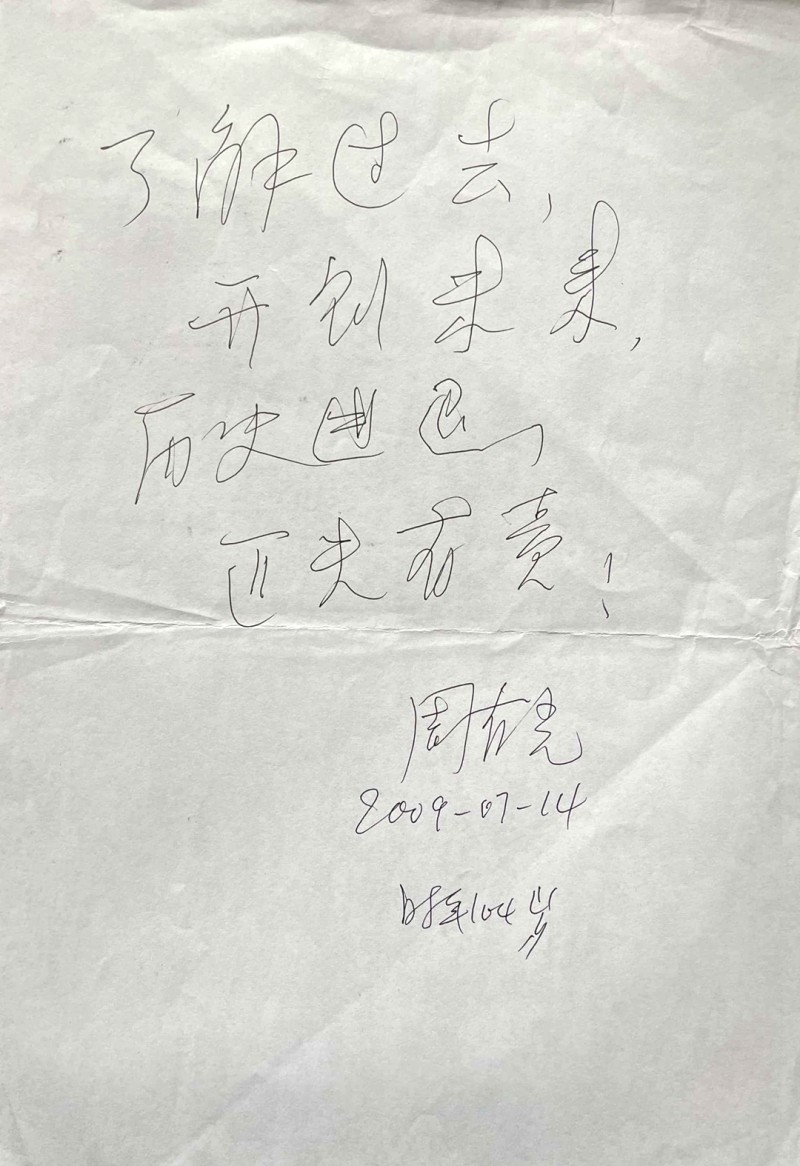 了解过去,
开创未来,
历史进退,
匹夫有责!
周有光
2009-07-14
时年104岁